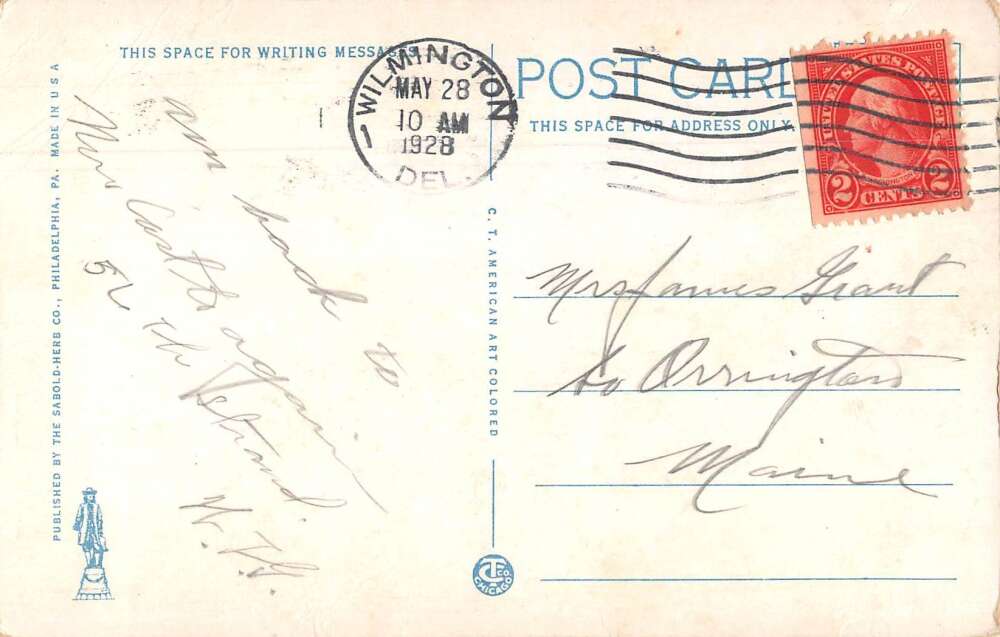 THIS SPACE FOR WRITING MESSAGES
WILMINGTON
MAY 28
10 AM
1928
DEL.
POST CARD
THIS SPACE FOR ADDRESS ONLY.
UNITED STATES POSTAGE
WASHINGTON
2 CENTS 2
am back to
New Castle again
52 the Strand.
W. H. G
Mrs James Grant
So Orrington
Maine
PUBLISHED BY THE SABOLD-HERB CO., PHILADELPHIA, PA. MADE IN U S A
C. T. AMERICAN ART COLORED
CT CO.
CHICAGO